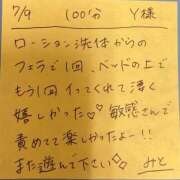 7/9 100分 Y様
ローション洗体からの
フェラで1回、ベッドの上で
もう1回イってくれて凄く
嬉しかった♡ 敏感さんで
責めてて楽しかったよー!!
また遊んで下さい みと